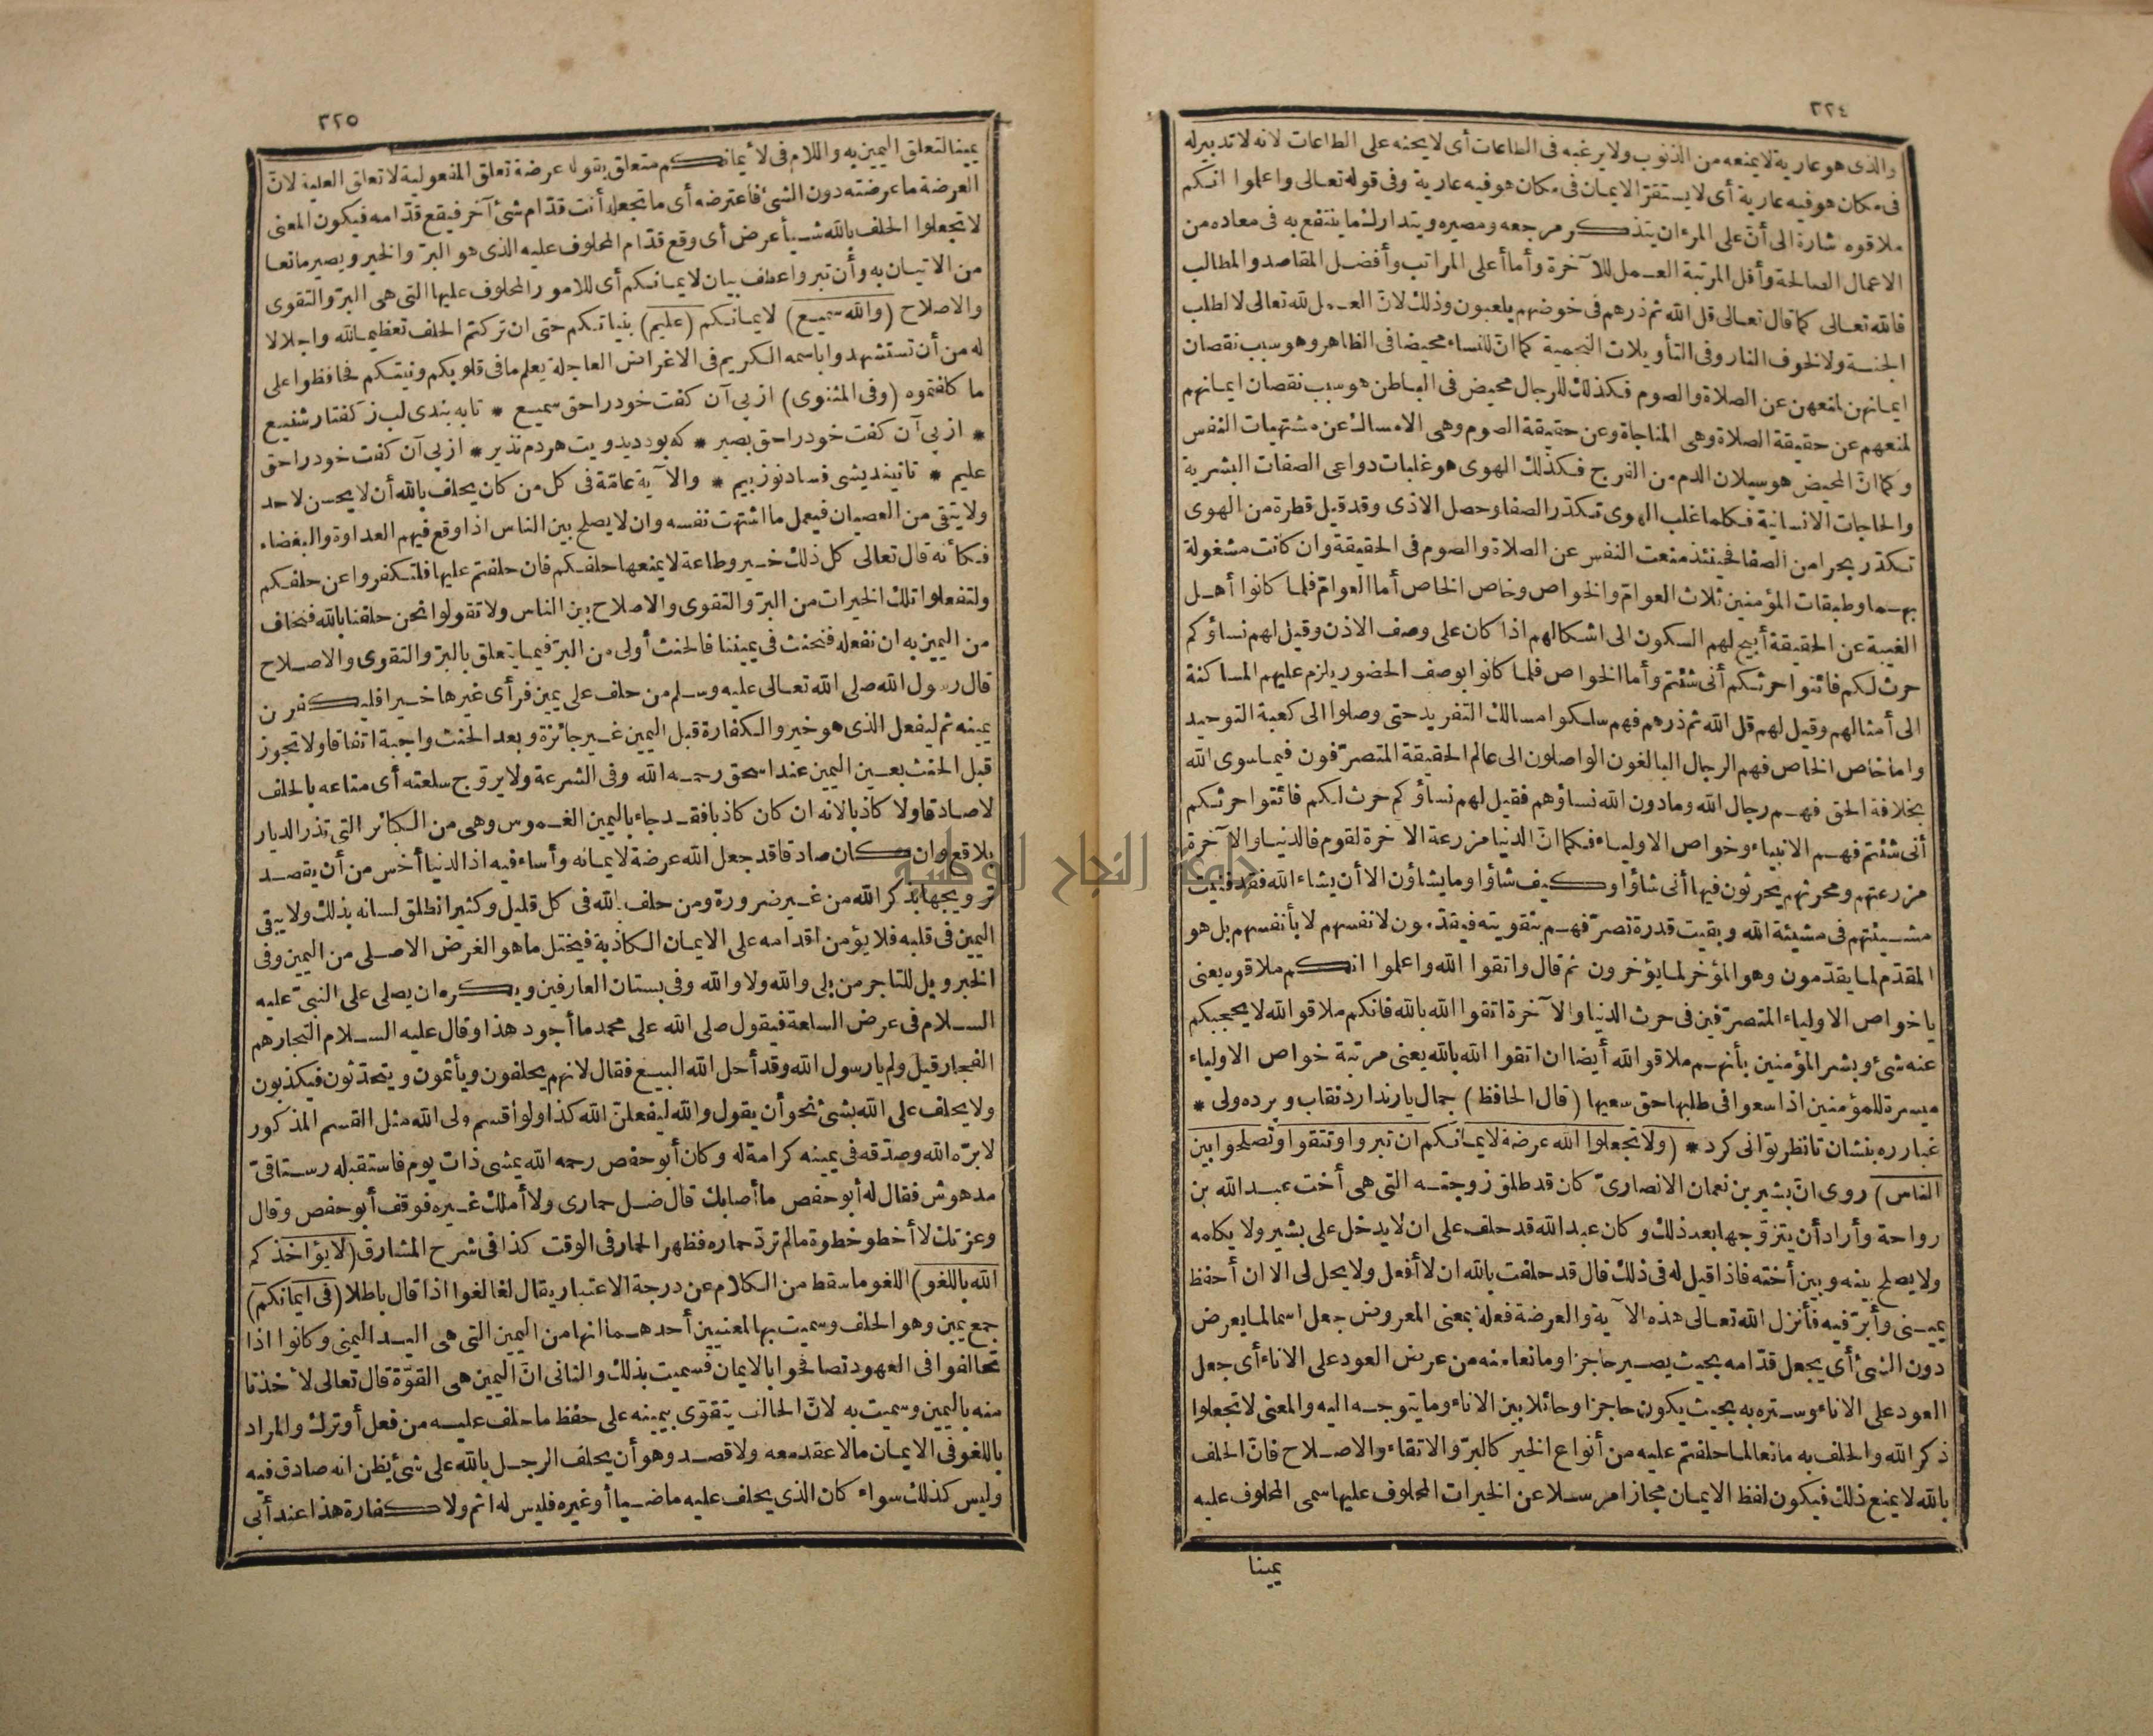 ٣٢٤
والذى هو عارية لا يمنعه من الذنوب ولا يرغبه فى الطاعات أى لا يحثه على الطاعات لانه لا تدبير له
فى مكان هو فيه عارية أى لا يستقر الايمان فى مكان هو فيه عارية وفى قوله تعالى واعلموا انكم
ملاقوه شارة الى أنّ على المرء ان يتذكر مرجعه ومصيره ويتدارك ما ينتفع به فى معاده من
الاعمال الصالحة وأقل المرتبة العمل للآخرة وأما أعلى المراتب وأفضل المقاصد والمطالب
فالله تعالى كما قال تعالى قل الله ثم ذرهم فى خوضهم يلعبون وذلك لانّ العمل لله تعالى لا لطلب
الجنة ولا لخوف النار وفى التأويلات النجمية كما انّ للنساء محيضا فى الظاهر وهو سبب نقصان
ايمانهن لمنعهن عن الصلاة والصوم فكذلك للرجال محيض فى الباطن هو سبب نقصان ايمانهم
لمنعهم عن حقيقة الصلاة وهى المناجاة وعن حقيقة الصوم وهى الامساك عن مشتهيات النفس
وكما انّ المحيض هو سيلان الدم من الفرج فكذلك الهوى هو غلبات دواعى الصفات البشرية
والحاجات الانسانية فكلما غلب الهوى تكدّر الصفا وحصل الاذى وقد قيل قطرة من الهوى
تكدّر بحرا من الصفا فحينئذ منعت النفس عن الصلاة والصوم فى الحقيقة وان كانت مشغولة
بهما وطبقات المؤمنين ثلاث العوام والخواص وخاص الخاص أما العوام فلما كانوا أهل
الغيبة عن الحقيقة أبيح لهم السكون الى اشكالهم اذا كان على وصف الاذن وقيل لهم نساؤكم
حرث لكم فائتوا حرثكم أنى شئتم وأما الخواص فلما كانوا بوصف الحضور يلزم عليهم المساكنة
الى أمثالهم وقيل لهم قل الله ثم ذرهم فهم سلكوا مسالك التفريد حتى وصلوا الى كعبة التوحيد
واما خاص الخاص فهم الرجال البالغون الواصلون الى عالم الحقيقة المتصرّفون فيما سوى الله
بخلافة الحق فهم رجال الله وما دون الله نساؤهم فقيل لهم نساؤكم حرث لكم فائتوا حرثكم
أنى شئتم فهم الانبياء وخواص الاولياء فكما انّ الدنيا مزرعة الآخرة لقوم فالدنيا والآخرة
مزرعتهم ومحرثهم يحرثون فيها أنى شاؤا وكيف شاؤا وما يشاؤن الا أن يشاء الله فقد فنيت
مشيئتهم فى مشيئة الله وبقيت قدرة تصرّفهم بتقويته فيقدّمون لانفسهم لا بأنفسهم بل هو
المقدّم لما يقدّمون وهو المؤخر لما يؤخرون ثم قال واتقوا الله واعلموا انكم ملاقوه يعنى
يا خواص الاولياء المتصرّفين فى حرث الدنيا والآخرة اتقوا الله بالله فانكم ملاقوا لله لا يحجبكم
عنه شئ وبشر المؤمنين بأنهم ملاقوا لله أيضا ان اتقوا الله بالله يعنى مرتبة خواص الاولياء
ميسرة للمؤمنين اذا سعوا فى طلبها حق سعيها (قال الحافظ) جمال يار ندارد نقاب وپرده ولى *
غبار ره بنشان تا نظر توانى كرد * (ولا تجعلوا الله عرضة لايمانكم ان تبروا وتتقوا وتصلحوا بين
الناس) روى انّ بشير بن نعمان الانصارىّ كان قد طلق زوجته التى هى أخت عبد الله بن
رواحة وأراد أن يتزوّجها بعد ذلك وكان عبد الله قد حلف على ان لا يدخل على بشير ولا يكلمه
ولا يصلح بينه وبين أخته فاذا قيل له فى ذلك قال قد حلفت بالله ان لا أفعل ولا يحل لى الا ان أحفظ
يمينى وأبرّ فيه فأنزل الله تعالى هذه الآية والعرضة فعلة بمعنى المعروض جعل اسما لما يعرض
دون الشئ أى يجعل قدّامه بحيث يصير حاجزا ومانعا منه من عرض العود على الاناء أى جعل
العود على الاناء وستره به بحيث يكون حاجزا وحائلا بين الاناء وما يتوجه اليه والمعنى لا تجعلوا
ذكر الله والحلف به مانعا لما حلفتم عليه من أنواع الخير كالبرّ والاتقاء والاصلاح فانّ الحلف
بالله لا يمنع ذلك فيكون لفظ الايمان مجازا مرسلا عن الخيرات المحلوف عليها سمى المحلوف عليه
يمينا
٣٢٥
يمينا لتعلق اليمين به واللام فى لأيمانكم متعلق بقوله عرضة تعلق المفعولية لا تعلق العلية لانّ
العرضة ما عرضته دون الشئ فاعترضه أى ما تجعله أنت قدّام شئ آخر فيقع قدّامه فيكون المعنى
لا تجعلوا الحلف بالله شيأ عرض أى وقع قدّام المحلوف عليه الذى هو البرّ والخير ويصير مانعا
من الاتيان به وأن تبروا عطف بيان لايمانكم أى للامور المحلوف عليها التى هى البرّ والتقوى
والاصلاح (والله سميع) لايمانكم (عليم) بنياتكم حتى ان تركتم الحلف تعظيما لله واجلالا
له من أن تستشهدوا باسمه الكريم فى الاغراض العاجلة يعلم ما فى قلوبكم ونيتكم فحافظوا على
ما كلفتموه (وفى المثنوى) از پى آن گفت خود را حق سميع * تا به بندى لب ز گفتار شنيع
* از پى آن گفت خود را حق بصير * كه بود ديد ويت هر دم نذير * از پى آن گفت خود را حق
عليم * تا نينديشى فساد توز بيم * والآية عامّة فى كل من كان يحلف بالله أن لا يحسن لاحد
ولا يتقى من العصيان فيعمل ما اشتهت نفسه وان لا يصلح بين الناس اذا وقع فيهم العداوة والبغضاء
فكأنه قال تعالى كل ذلك خير وطاعة لا يمنعها حلفكم فان حلفتم عليها فلتكفروا عن حلفكم
ولتفعلوا تلك الخيرات من البرّ والتقوى والاصلاح بين الناس ولا تقولوا نحن حلفنا بالله فنخاف
من اليمين به ان نفعله فنحنث فى يميننا فالحنث أولى من البرّ فيما يتعلق بالبرّ والتقوى والاصلاح
قال رسول الله صلى الله تعالى عليه وسلم من حلف على يمين فرأى غيرها خيرا فليكفر ن
يمينه ثم ليفعل الذى هو خير والكفارة قبل اليمين غير جائزة وبعد الحنث واجبة اتفاقا ولا تجوز
قبل الحنث بعين اليمين عند اسحق رحمه الله وفى الشرعة ولا يروّج سلعته أى متاعه بالحلف
لا صادقا ولا كاذبا لانه ان كان كاذبا فقد جاء باليمين الغموس وهى من الكبائر التى تذر الديار
بلاقع وان كان صادقا قد جعل الله عرضة لايمانه وأساء فيه اذ الدنيا أخس من أن يقصد
ترويجها بذكر الله من غير ضرورة ومن حلف بالله فى كل قليل وكثير انطلق لسانه بذلك ولا يبقى
اليمين فى قلبه فلا يؤمن اقدامه على الايمان الكاذبة فيختل ما هو الغرض الاصلى من اليمين وفى
الخبر ويل للتاجر من بلى والله ولا والله وفى بستان العارفين ويكره ان يصلى على النبىّ عليه
السلام فى عرض السلعة فيقول صلى الله على محمد ما أجود هذا وقال عليه السلام التجار هم
الفجار قيل ولم يا رسول الله وقد أحل الله البيع فقال لانهم يحلفون ويأثمون ويتحدّثون فيكذبون
ولا يحلف على الله بشئ نحو أن يقول والله ليفعلنّ الله كذا ولو أقسم ولى الله مثل القسم المذكور
لابرّه الله وصدّقه فى يمينه كرامة له وكان أبو حفص رحمه الله يمشى ذات يوم فاستقبله رستاقىّ
مدهوش فقال له أبو حفص ما أصابك قال ضل حمارى ولا أملك غيره فوقف أبو حفص وقال
وعزتك لا أخطو خطوة ما لم تردّ حماره فظهر الحمار فى الوقت كذا فى شرح المشارق (لا يؤاخذكم
الله باللغو) اللغو ما سقط من الكلام عن درجة الاعتبار يقال لغا لغوا اذا قال باطلا (فى ايمانكم)
جمع يمين وهو الحلف وسميت بها لمعنيين أحدهما انها من اليمين التى هى اليد اليمنى وكانوا اذا
تحالفوا فى العهود تصافحوا بالايمان فسميت بذلك والثانى انّ اليمين هى القوّة قال تعالى لأخذنا
منه باليمين وسميت به لانّ الحالف يتقوّى بيمينه على حفظ ما حلف عليه من فعل أو ترك والمراد
باللغو فى الايمان ما لا عقد معه ولا قصد وهو أن يحلف الرجل بالله على شئ يظن انه صادق فيه
وليس كذلك سواء كان الذى يحلف عليه ماضيا أو غيره فليس له اثم ولا كفارة هذا عند أبى
جامعة النجاح الوطنية